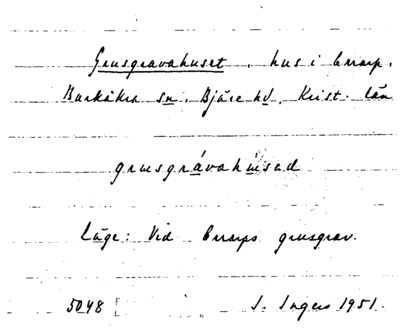 Grusgravahuset, hus i Errarp,
Barkåkra sn, Bjäre hd, Krist. län
grusgrávahúsad
Läge: Vid Errarps grusgrav.
5048 I. Ingers 1951.